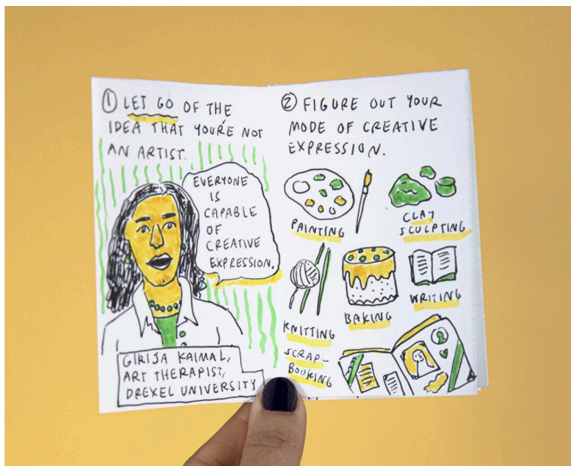 ① LET GO OF THE
IDEA THAT YOU'RE NOT
AN ARTIST.
EVERYONE
IS
CAPABLE
OF
CREATIVE
EXPRESSION.
GIRIJA KAIMAL,
ART THERAPIST,
DREXEL UNIVERSITY
② FIGURE OUT YOUR
MODE OF CREATIVE
EXPRESSION.
PAINTING
CLAY
SCULPTING
KNITTING
BAKING
WRITING
SCRAP-
BOOKING